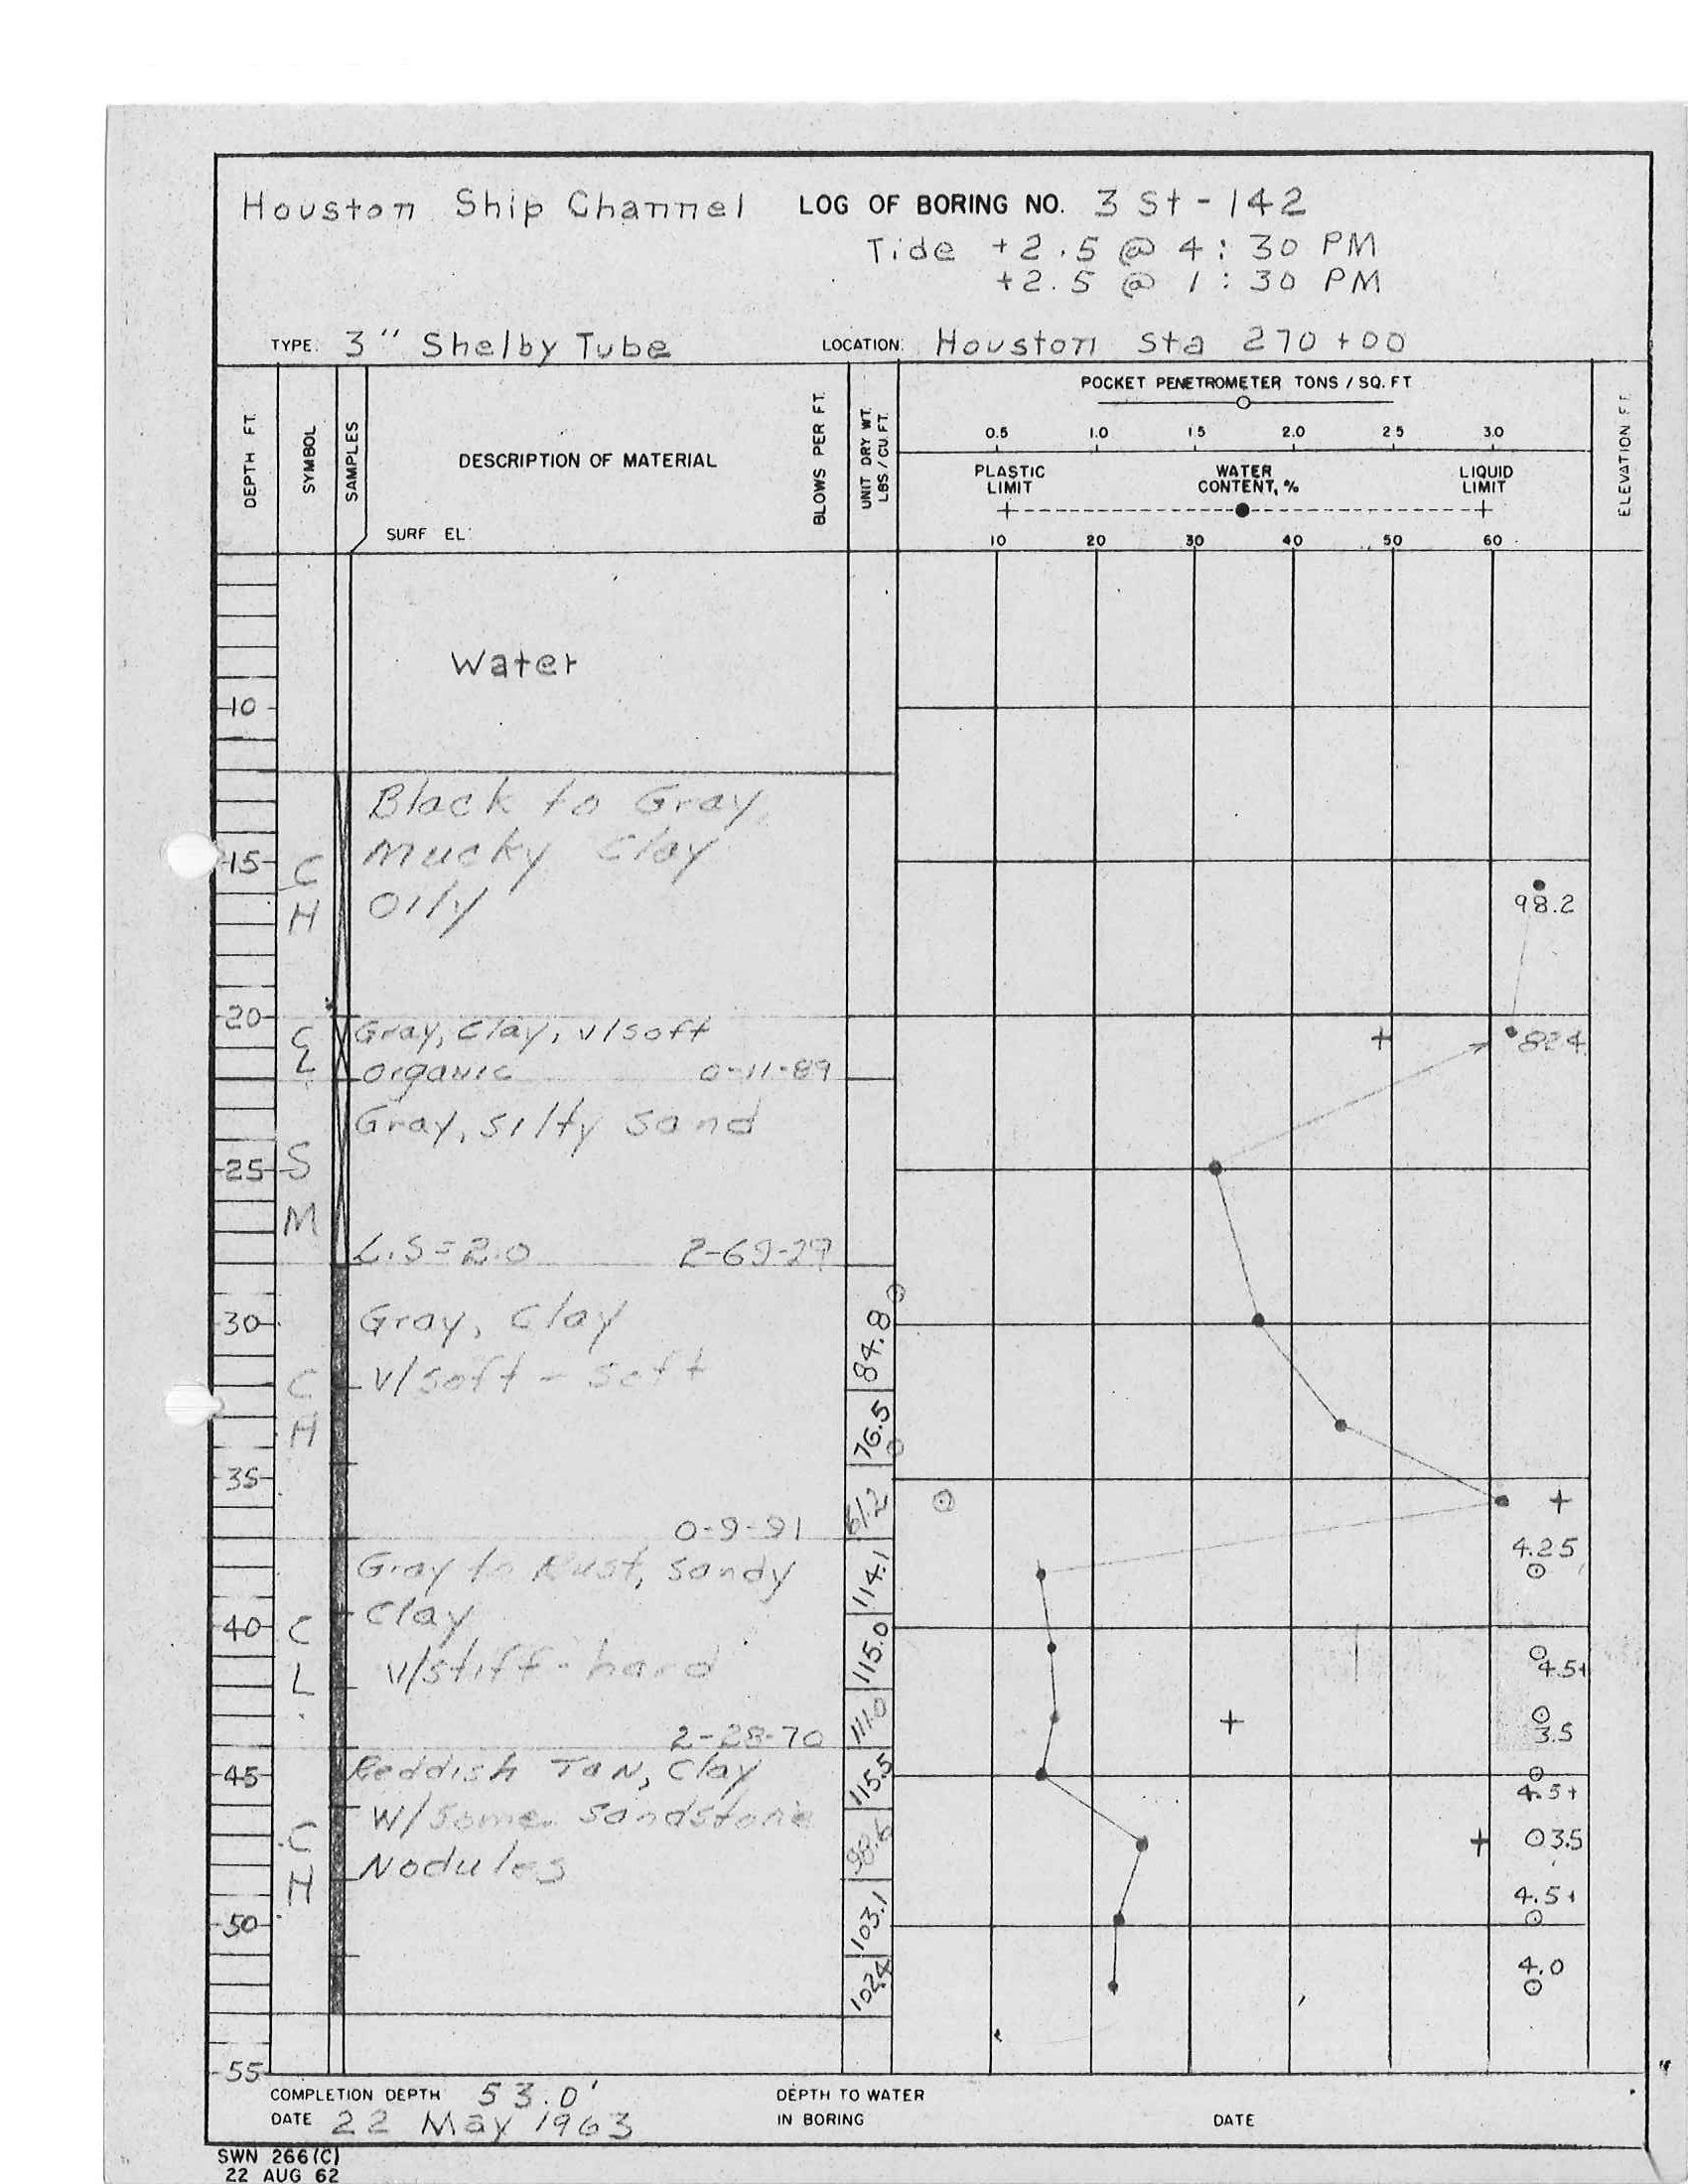 Houston Ship Channel LOG OF BORING NO. 3 St - 142
Tide +2.5 @ 4:30 PM
+2.5 @ 1:30 PM
TYPE: 3" Shelby Tube LOCATION: Houston Sta 270+00
DEPTH FT.
SYMBOL
SAMPLES
DESCRIPTION OF MATERIAL
SURF EL:
BLOWS PER FT.
UNIT DRY WT. LBS / CU. FT.
POCKET PENETROMETER TONS / SQ. FT
0.5 1.0 1.5 2.0 2.5 3.0
PLASTIC LIMIT
WATER CONTENT, %
LIQUID LIMIT
10 20 30 40 50 60
ELEVATION FT.
Water
10
Black to Gray,
15 CH Mucky Clay
Oily
98.2
20
CL Gray, Clay, v/soft
organic 0-11-89
82.4
Gray, silty sand
25 SM
L.S=2.0 2-69-29
30 Gray, Clay 84.8
CH v/soft - soft
76.5
35
61.2
0-9-91
4.25
Gray to Rust, sandy 114.1
40 CL Clay
v/stiff - hard 115.0 4.5+
111.0 3.5
2-28-70
45 Reddish Tan, Clay 115.5 4.5+
CH W/some sandstone
Nodules 98.6 3.5
50 103.1 4.5+
102.4 4.0
55
COMPLETION DEPTH 53.0'
DATE 22 May 1963
DEPTH TO WATER
IN BORING
DATE
SWN 266(C)
22 AUG 62